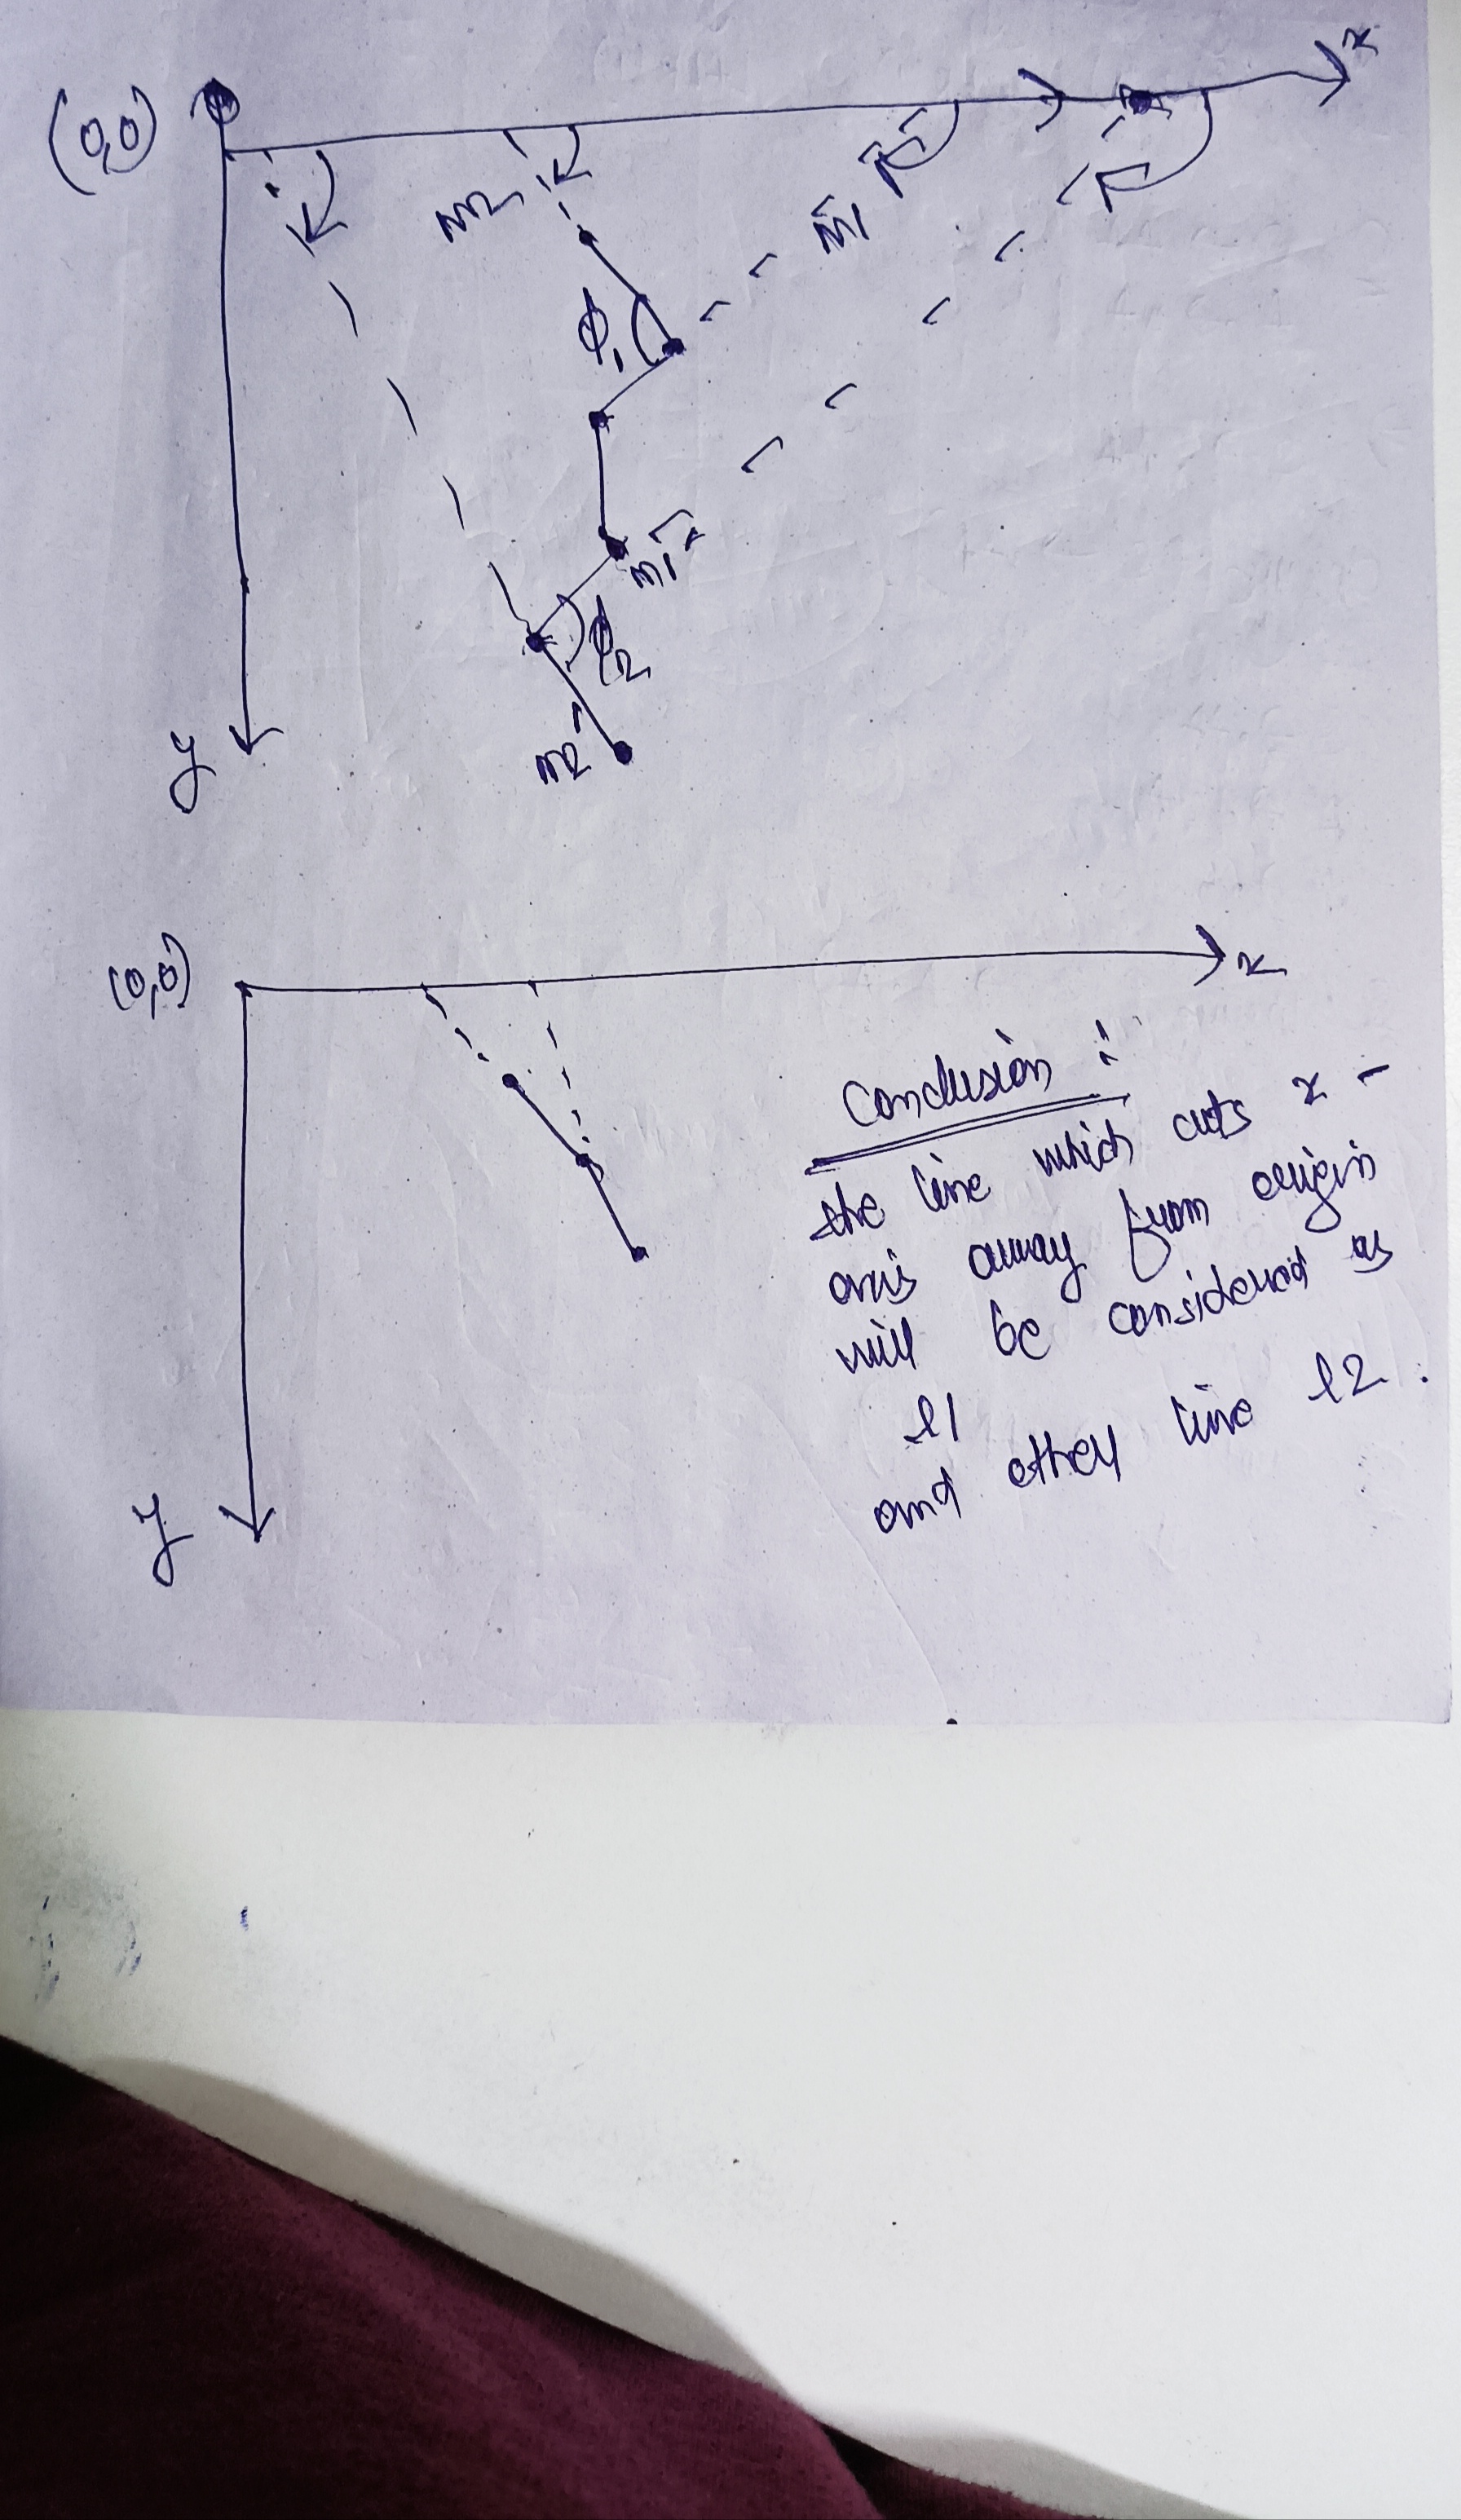 x
(0,0)
m2
m1
ϕ1
m1
ϕ2
m2
y
(0,0)
x
Conclusion :
the line which cuts x -
axis away from origin
will be considered as
l1
and other line l2 .
y